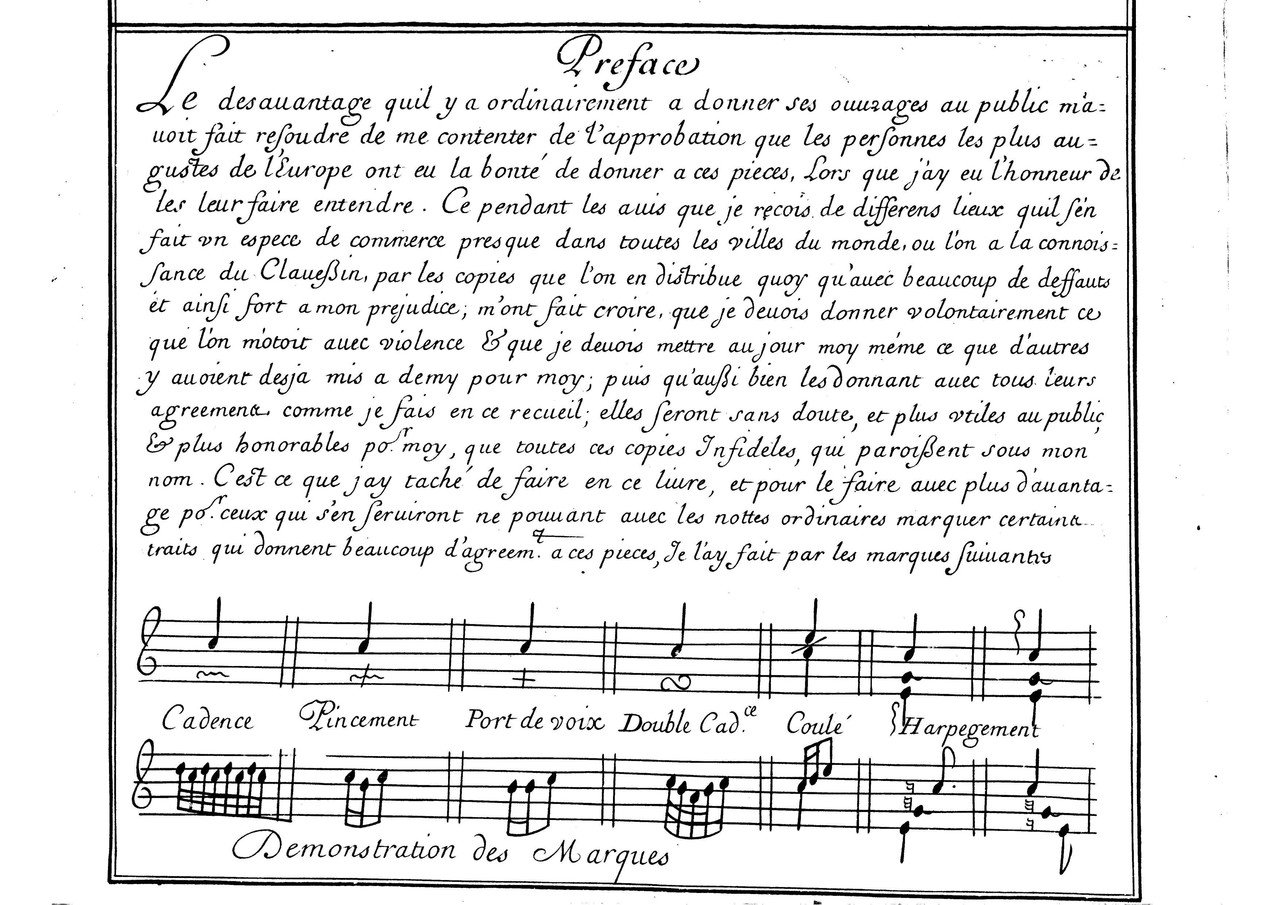 Preface
Le desauantage quil y a ordinairement a donner ses ouurages au public m'a=
uoit fait resoudre de me contenter de l'approbation que les personnes les plus au=
gustes de l'Europe ont eu la bonté de donner a ces pieces, Lors que j'ay eu l'honneur de
les leur faire entendre. Ce pendant les auis que je reçois de differens lieux quil s'en
fait vn espece de commerce presque dans toutes les villes du monde, ou l'on a la connois=
sance du Claueßin, par les copies que l'on en distribue quoy qu'auec beaucoup de deffauts
et ainsi fort a mon prejudice; m'ont fait croire, que je deuois donner volontairement ce
que l'on m'otoit auec violence & que je deuois mettre au jour moy méme ce que d'autres
y auoient desja mis a demy pour moy; puis qu'außi bien les donnant auec tous leurs
agreements comme je fais en ce recueil; elles seront sans doute, et plus vtiles au public,
& plus honorables po.r moy, que toutes ces copies Infideles, qui paroißent sous mon
nom. C'est ce que j'ay taché de faire en ce liure, et pour le faire auec plus d'auanta=
ge po.r ceux qui s'en seruiront ne pouuant auec les nottes ordinaires marquer certains
traits qui donnent beaucoup d'agreem.t a ces pieces, Je l'ay fait par les marques suiuantes
Cadence Pincement Port de voix Double Cad.ce Coulé Harpegement
Demonstration des Marques